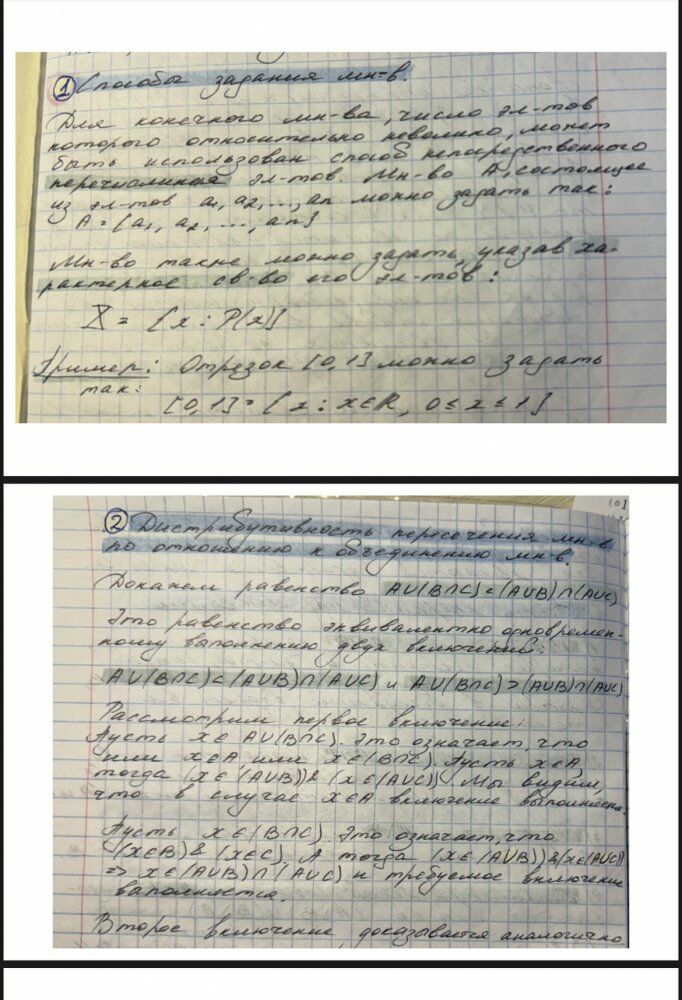 ① Способы задания мн-в.
Для конечного мн-ва, число эл-тов
которого относительно невелико, может
быть использован способ непосредственного
перечисления эл-тов. Мн-во A, состоящее
из эл-тов a₁, a₂, ..., an можно задать так:
A = {a₁, a₂, ..., an}
Мн-во также можно задать, указав ха-
рактерное св-во его эл-тов:
X = {x : P(x)}
Пример: Отрезок [0,1] можно задать
так:
[0,1] = {x : x∈R, 0≤x≤1}
② Дистрибутивность пересечения мн-в
по отношению к объединению мн-в.
Докажем равенство A∪(B∩C)=(A∪B)∩(A∪C)
Это равенство эквивалентно одновремен-
ному выполнению двух включений:
A∪(B∩C)⊂(A∪B)∩(A∪C) и A∪(B∩C)⊃(A∪B)∩(A∪C)
Рассмотрим первое включение:
Пусть x∈A∪(B∩C). Это означает, что
или x∈A, или x∈(B∩C). Пусть x∈A,
тогда (x∈(A∪B))&(x∈(A∪C)). Мы видим,
что в случае x∈A включение выполняется.
Пусть x∈(B∩C). Это означает, что
(x∈B)&(x∈C). А тогда (x∈(A∪B))&(x∈(A∪C))
=> x∈(A∪B)∩(A∪C) и требуемое включение
выполняется.
Второе включение доказывается аналогично.